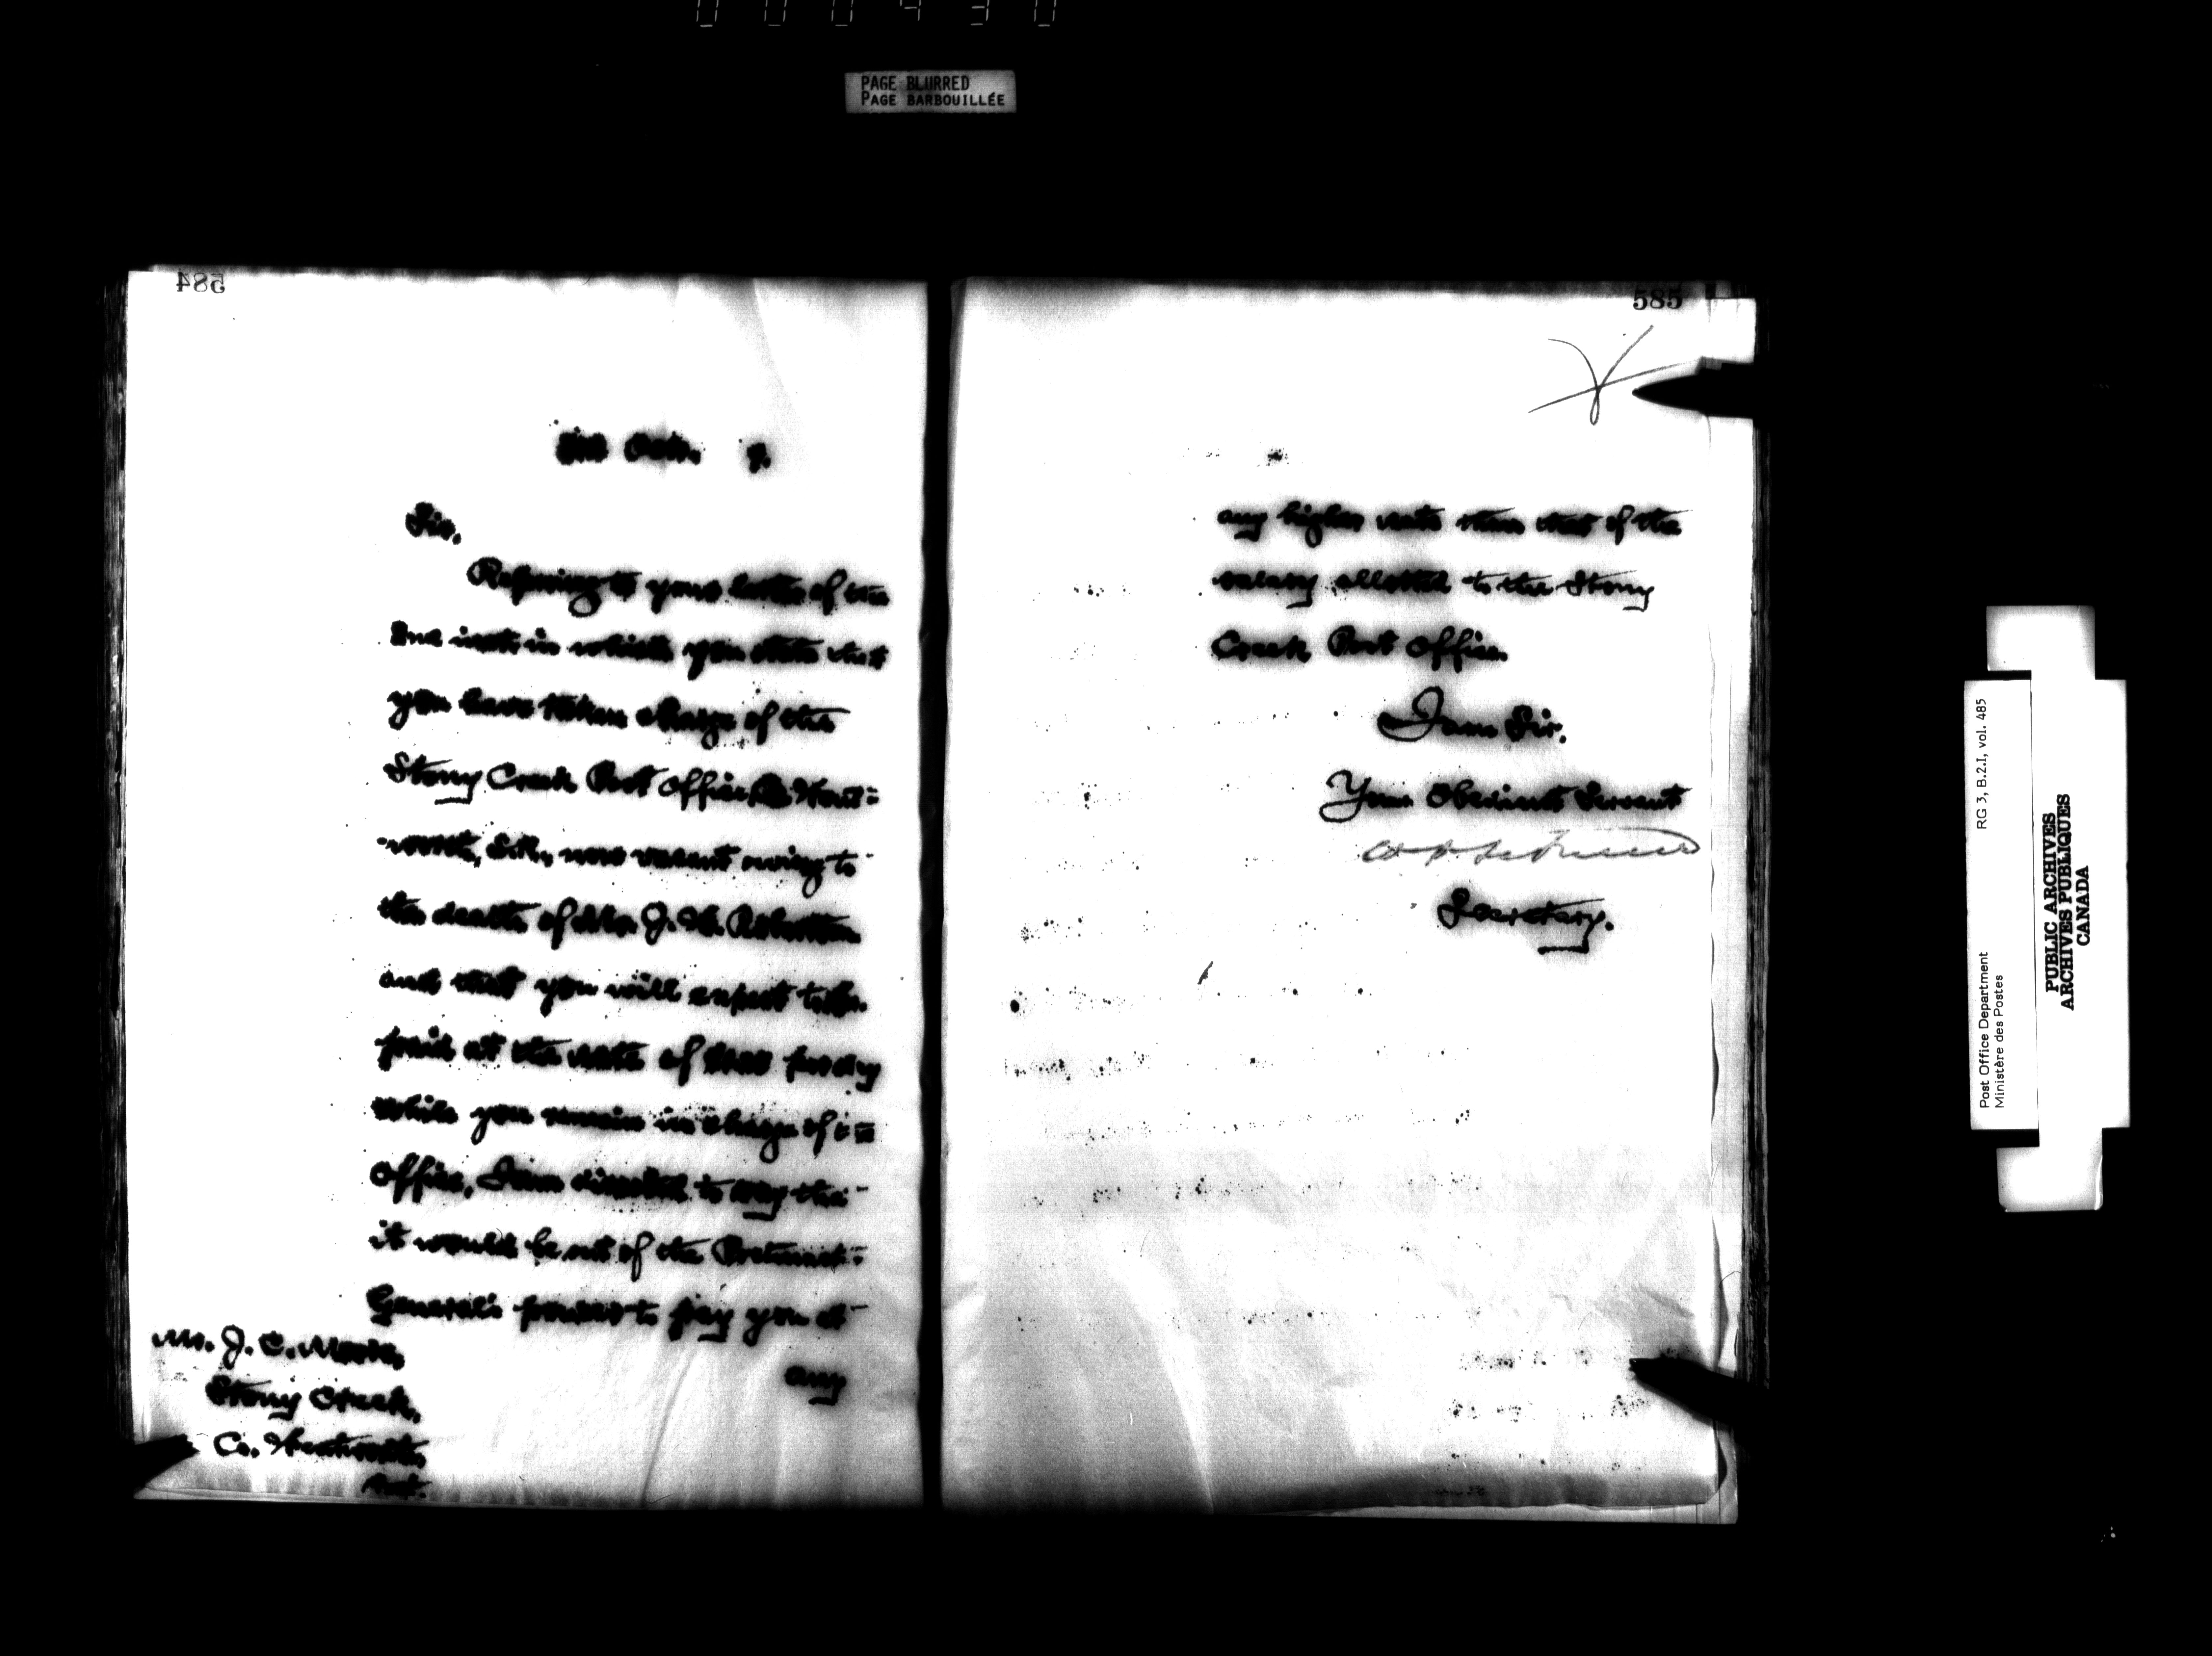 PAGE BLURRED
PAGE BARBOUILLÉE
584
Oct. 9.
Sir,
Referring to your letter of the
2nd inst. in which you state that
you have taken charge of the
Stony Creek Post Office, Co. Went=
=worth, Ont., now vacant owing to
the death of Mr. J. W.
and that you will expect to be
paid at the rate of per day
while you remain in charge of the
Office, I am directed to say that
it would be out of the Postmaster=
General's power to pay you at
any
Mr. J. C.
Stony Creek,
Co. Wentworth,
Ont.
585
any higher rate than that of the
salary allotted to the Stony
Creek Post Office.
I am Sir,
Your Obedient Servant
Secretary.
RG 3, B.2.I, vol. 485
Post Office Department
Ministère des Postes
PUBLIC ARCHIVES
ARCHIVES PUBLIQUES
CANADA